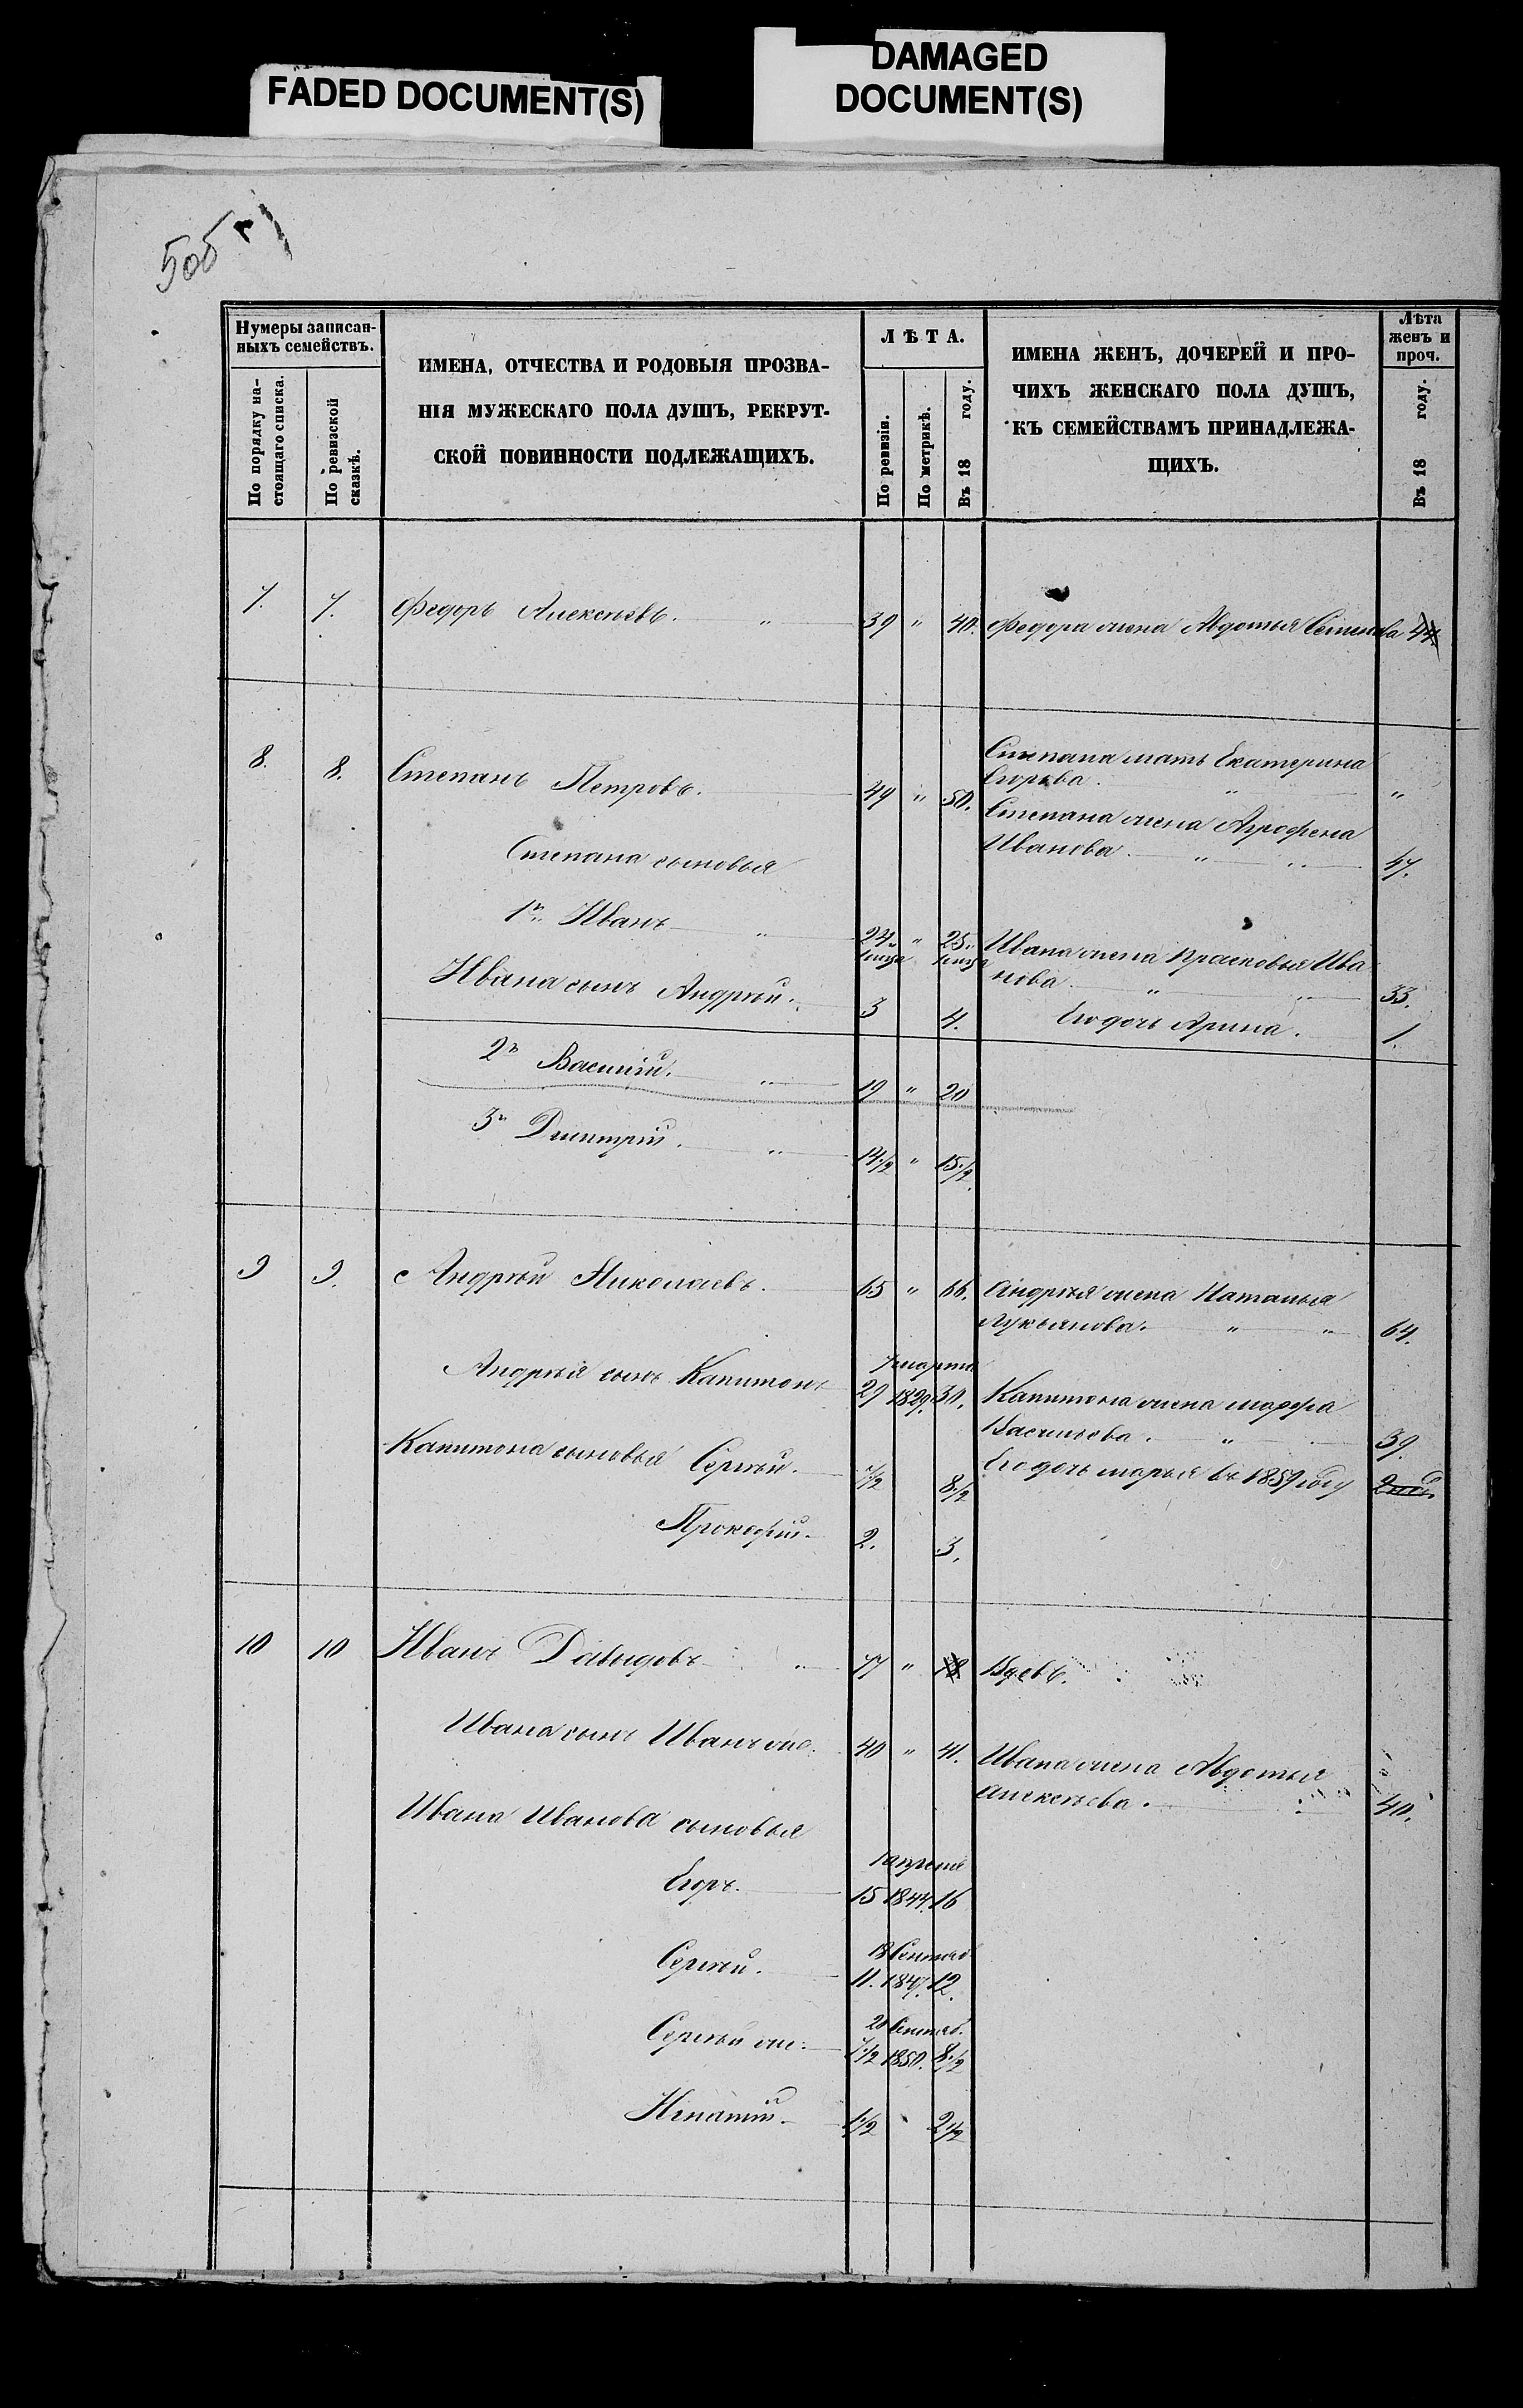 FADED DOCUMENT(S)
DAMAGED
DOCUMENT(S)
Нумеры записан-
ныхъ семействъ.
По порядку на-
стоящаго списка.
По ревизской
сказкѣ.
ИМЕНА, ОТЧЕСТВА И РОДОВЫЯ ПРОЗВА-
НІЯ МУЖЕСКАГО ПОЛА ДУШЪ, РЕКРУТ-
СКОЙ ПОВИННОСТИ ПОДЛЕЖАЩИХЪ.
ЛѢТА.
По ревизіи.
По метрикѣ.
Въ 18 году.
ИМЕНА ЖЕНЪ, ДОЧЕРЕЙ И ПРО-
ЧИХЪ ЖЕНСКАГО ПОЛА ДУШЪ,
КЪ СЕМЕЙСТВАМЪ ПРИНАДЛЕЖА-
ЩИХЪ.
Лѣта
женъ и
проч.
Въ 18 году.
7. 7. Федоръ Алексѣевъ. " 39 " 40. Федора жена Авдотья Семенова 44.
Степана мать Екатерина
8. 8. Степанъ Петровъ. 49 " 50. Егорова. " "
Степана жена Агрофена
Степана сыновья Иванова. " " 47.
1й Иванъ " 24 " 25. Ивана жена Прасковья Ива
нова. " " 33.
Ивана сынъ Андрей. 3 4. Его дочь Арина. 1.
2й Василій. " 19 " 20
3й Дмитрій. " 14 1/2 " 15 1/2
9 9. Андрей Николаевъ. 65 " 66. Андрея жена Наталья
Лукьянова. " " 64.
7 марта
Андрея сынъ Капитонъ 29 1829. 30. Капитона жена Марфа
Васильева. " 39.
Капитона сыновья Сергѣй. 7 1/2 8 1/2 Его дочь Марья въ 1859 году
Прокофій. 2. 3.
10 10 Иванъ Давыдовъ " 77 " 78 Вдовъ.
Ивана сынъ Иванъ же. 40 " 41. Ивана жена Авдотья
Алексѣева. 40.
Ивана Иванова сыновья
апреля
Егоръ. 15 1844. 16
18 Сентяб.
Сергѣй. 11. 1847. 12.
20 Сентяб.
Сергѣй же. 7 1/2 1850. 8 1/2
Игнатій. 1 1/2 2 1/2